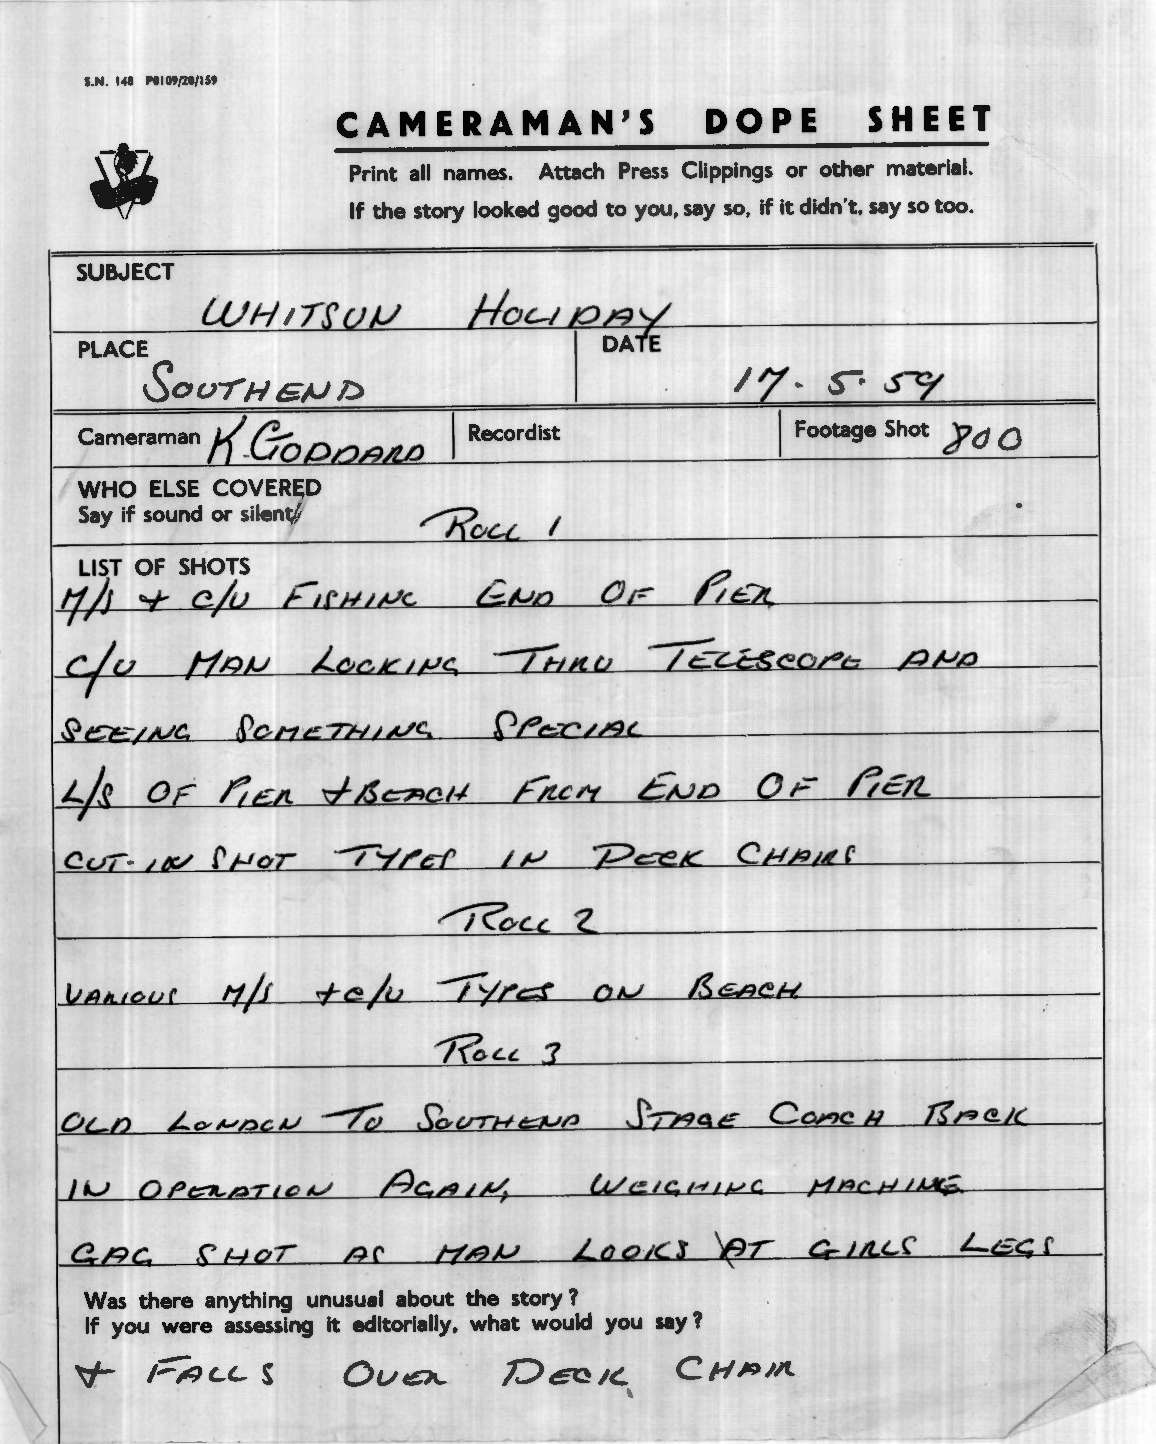 S.N. 148 P8109/28/159
CAMERAMAN'S DOPE SHEET
Print all names. Attach Press Clippings or other material.
If the story looked good to you, say so, if it didn't, say so too.
SUBJECT
WHITSUN HOLIDAY
PLACE
SOUTHEND
DATE
17. 5. 59
Cameraman K. GODDARD
Recordist
Footage Shot 800
WHO ELSE COVERED
Say if sound or silent
ROLL 1
LIST OF SHOTS
M/S + C/U FISHING END OF PIER
C/U MAN LOOKING THRU TELESCOPE AND
SEEING SOMETHING SPECIAL
L/S OF PIER + BEACH FROM END OF PIER
CUT-IN SHOT TYPES IN DECK CHAIRS
ROLL 2
VARIOUS M/S + C/U TYPES ON BEACH
ROLL 3
OLD LONDON TO SOUTHEND STAGE COACH BACK
IN OPERATION AGAIN, WEIGHING MACHINE
GAG SHOT AS MAN LOOKS AT GIRLS LEGS
Was there anything unusual about the story?
If you were assessing it editorially, what would you say?
+ FALLS OVER DECK CHAIR